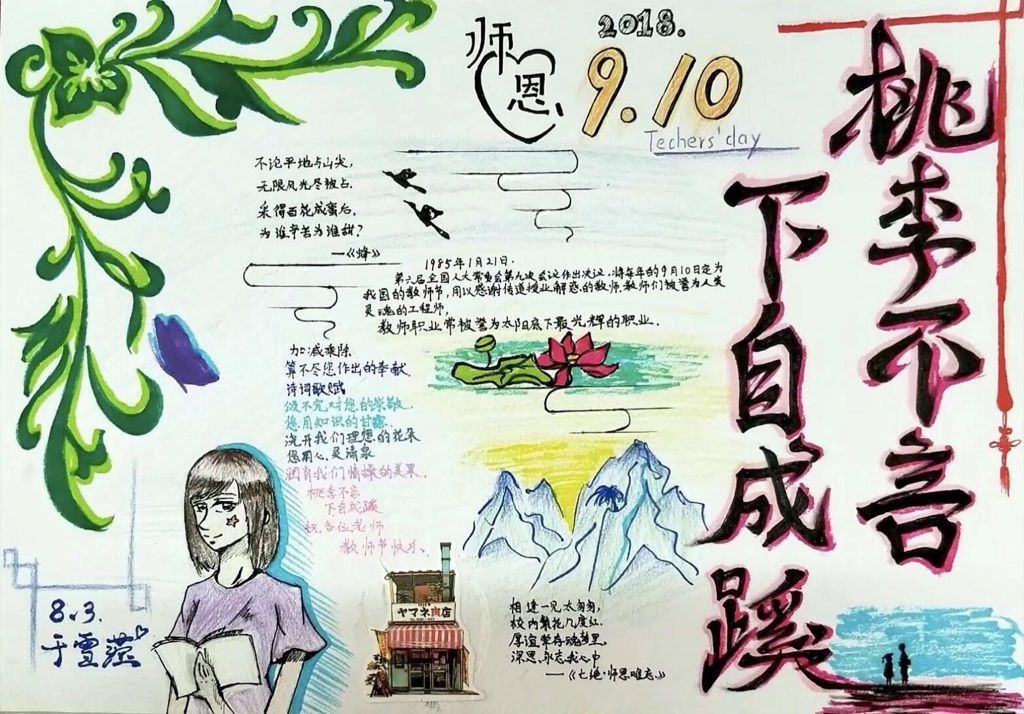 师恩
2018.
9.10
Techers'day
桃李不言
下自成蹊
不论平地与山尖,
无限风光尽被占.
采得百花成蜜后,
为谁辛苦为谁甜?
—《蜂》
1985年1月21日.
第六届全国人大常委会第九次会议作出决议.将每年的9月10日定为
我国的教师节,用以感谢传道授业解惑的教师.教师们被誉为人类
灵魂的工程师,
教师职业常被誉为太阳底下最光辉的职业.
加减乘除
算不尽您作出的奉献
诗词歌赋
颂不完对您的崇敬.
您用知识的甘露.
浇开我们理想的花朵
您用心灵清泉
润育我们情操的美果.
桃李不言
下自成蹊
祝各位老师
教师节快乐
ヤマネ肉店
相逢一见太匆匆,
校内繁花几度红.
厚谊常存魂梦里.
深恩永志我心中
——《七绝·师恩难忘》
8.3.
于雪